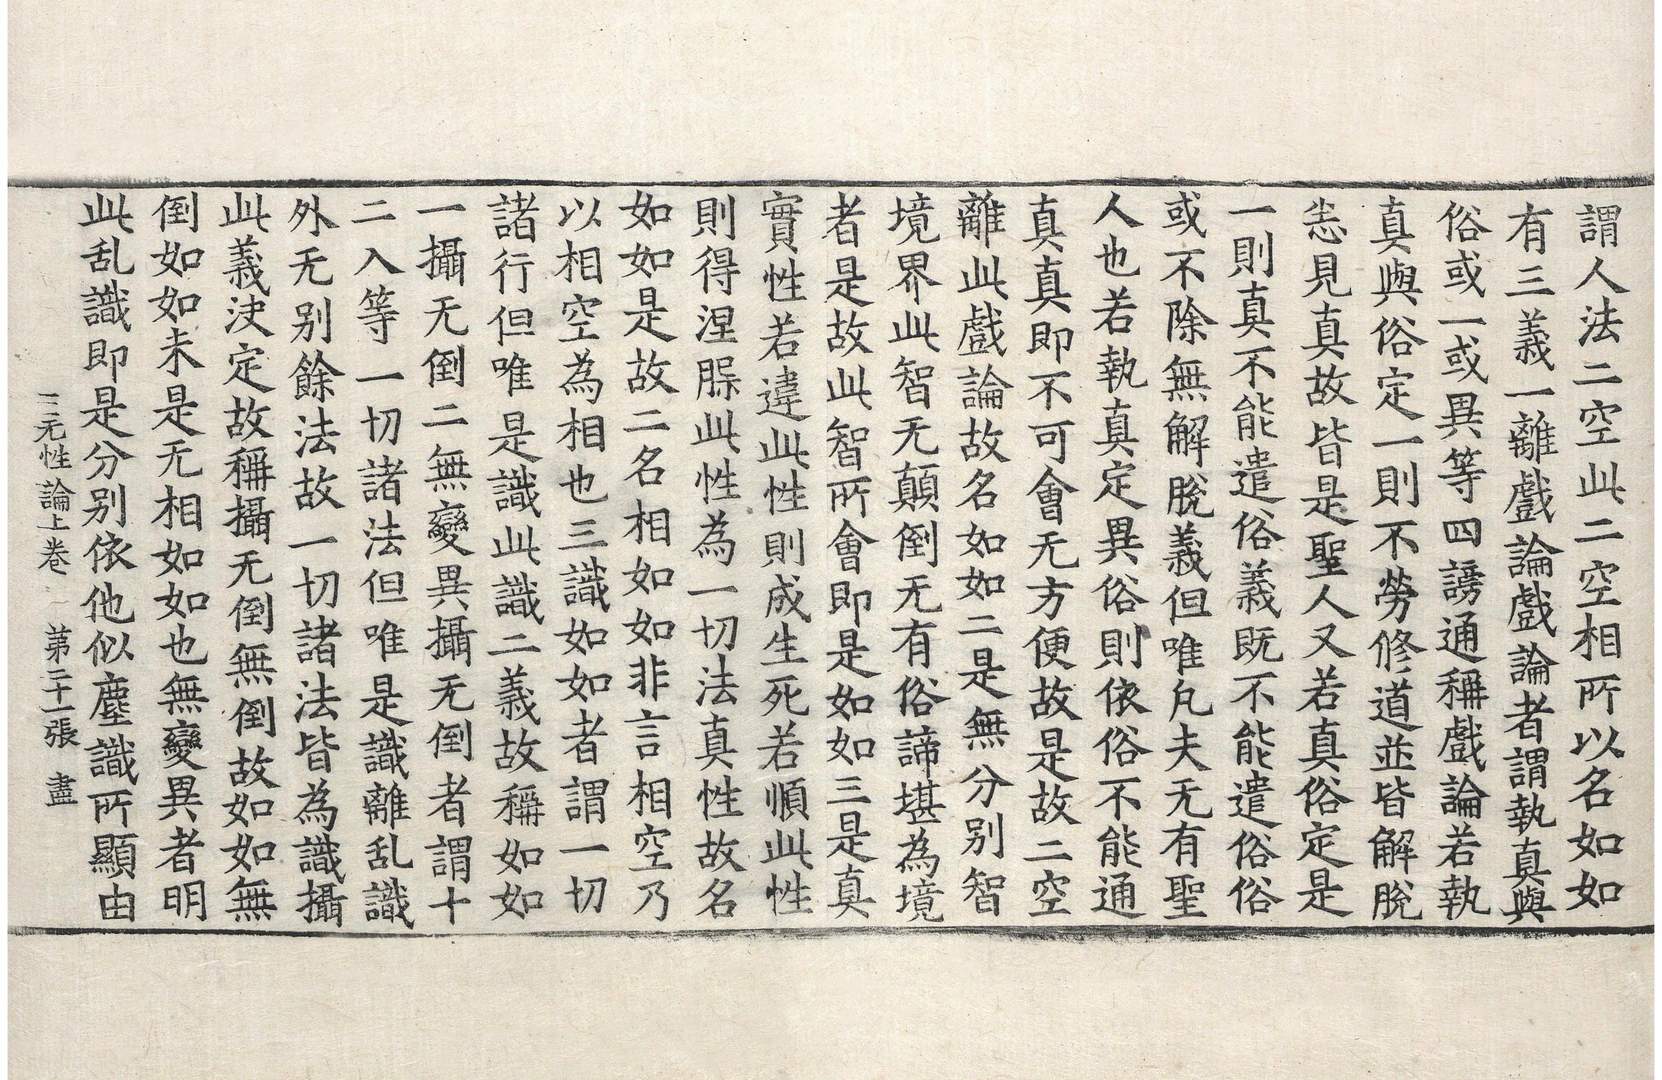 謂人法二空此二空相所以名如如
有三義一離戲論戲論者謂執真與
俗或一或異等四謗通稱戲論若執
真與俗定一則不勞修道並皆解脫
恙見真故皆是聖人又若真俗定是
一則真不能遣俗義既不能遣俗俗
或不除無解脫義但唯凡夫无有聖
人也若執真定異俗則依俗不能通
真真即不可會无方便故是故二空
離此戲論故名如如二是無分別智
境界此智无顛倒无有俗諦堪為境
者是故此智所會即是如如三是真
實性若違此性則成生死若順此性
則得涅𣵀此性為一切法真性故名
如如是故二名相如如非言相空乃
以相空為相也三識如如者謂一切
諸行但唯是識此識二義故稱如如
一攝无倒二無變異攝无倒者謂十
二入等一切諸法但唯是識離乱識
外无別餘法故一切諸法皆為識攝
此義決定故稱攝无倒無倒故如如無
倒如如未是无相如如也無變異者明
此乱識即是分別依他似塵識所顯由
三无性論上卷 第二十一張 盡